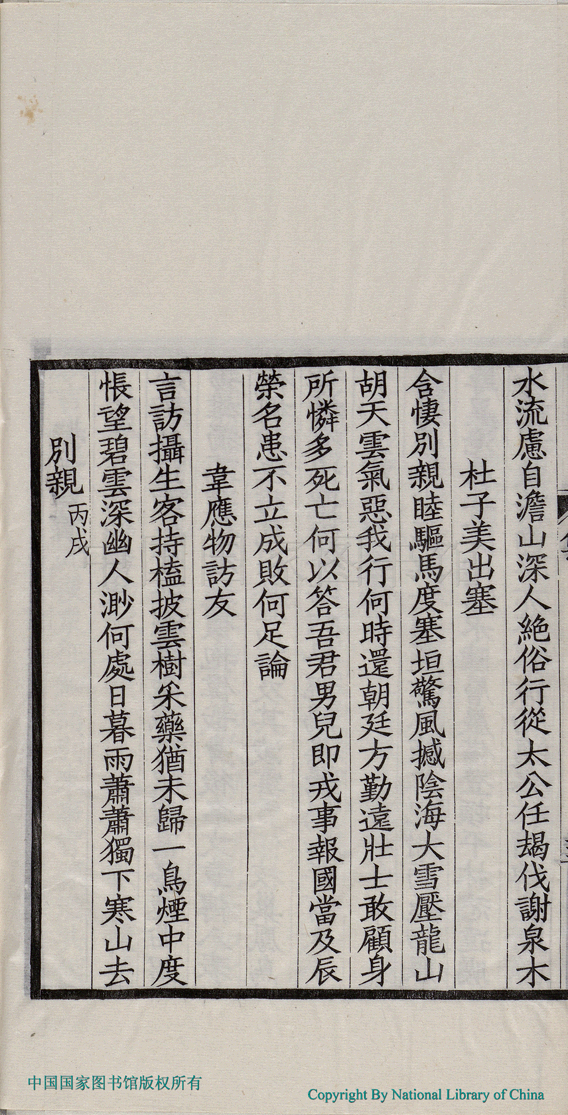 水流慮自澹山深人絕俗行從太公任朅伐謝泉木
杜子美出塞
含悽別親睦驅馬度塞垣驚風撼陰海大雪壓龍山
胡天雲氣惡我行何時還朝廷方勤遠壯士敢顧身
所憐多死亡何以答吾君男兒即戎事報國當及辰
榮名患不立成敗何足論
韋應物訪友
言訪攝生客持榼披雲樹采藥猶未歸一鳥煙中度
悵望碧雲深幽人渺何處日暮雨蕭蕭獨下寒山去
別親 丙戌
中国国家图书馆版权所有
Copyright By National Library of China